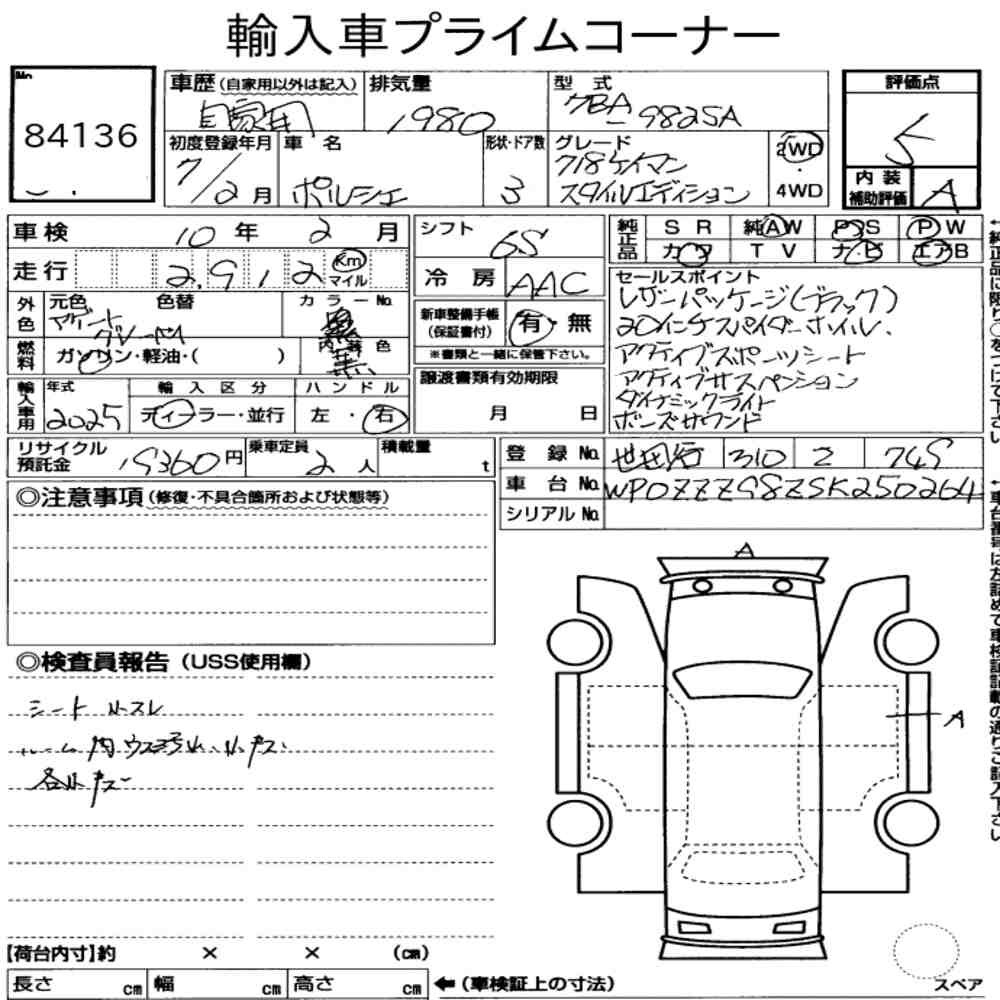 輸入車プライムコーナー
No.
84136
車歴(自家用以外は記入)
自家用
排気量
1980
型式
7BA-982SA
評価点
5
内装補助評価
A
初度登録年月
7/2月
車名
ポルシェ
形状・ドア数
3
グレード
718ケイマン
スタイルエディション
2WD
・
4WD
車検
10年 2月
走行
2,912 Km
マイル
シフト
6S
冷房
AAC
純正品
SR 純AW PS PW
カワ TV ナビ エアB
外色
元色
色替
カラーNo.
アゲート
グレーM
黒
内装色
黒
燃料
ガソリン・軽油・( )
新車整備手帳
(保証書付)
有・無
※書類と一緒に保管下さい。
譲渡書類有効期限
月 日
セールスポイント
レザーパッケージ(ブラック)
20インチスパイダーホイル、
アクティブスポーツシート
アクティブサスペンション
ダイナミックライト
ボーズサウンド
輸入車用
年式
2025
輸入区分
ディーラー・並行
ハンドル
左・右
リサイクル預託金
19360円
乗車定員
2人
積載量
t
登録No.
世田谷 310 749
車台No.
WP0ZZZ98ZSK250264
シリアルNo.
◎注意事項(修復・不具合箇所および状態等)
◎検査員報告(USS使用欄)
シート 小スレ
ルーム内ウス汚れ、小キズ、
各小キズ
A
A
スペア
【荷台内寸】約 × × (cm)
長さ cm 幅 cm 高さ cm
←(車検証上の寸法)
↑純正品に限り○をつけて下さい
↑車台番号は左詰めで車検証記載の通りご記入下さい